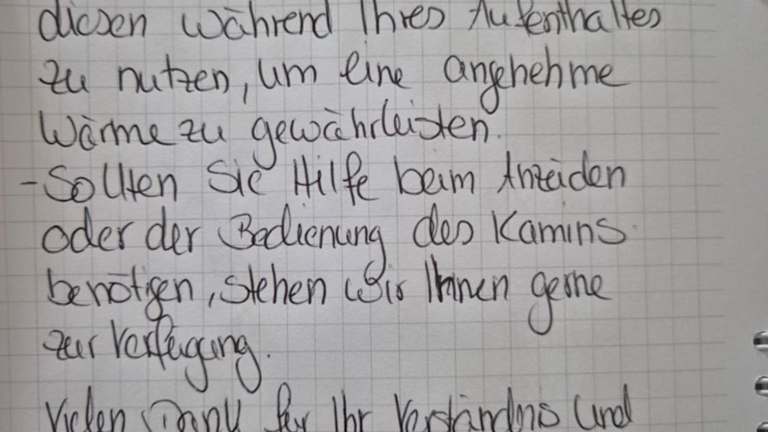 diesen während Ihres Aufenthaltes
zu nutzen, um eine angenehme
Wärme zu gewährleisten.
- Sollten Sie Hilfe beim Anzeiden
oder der Bedienung des Kamins
benötigen, stehen wir Ihnen gerne
zur Verfügung.
Vielen Dank für Ihr Verständnis und